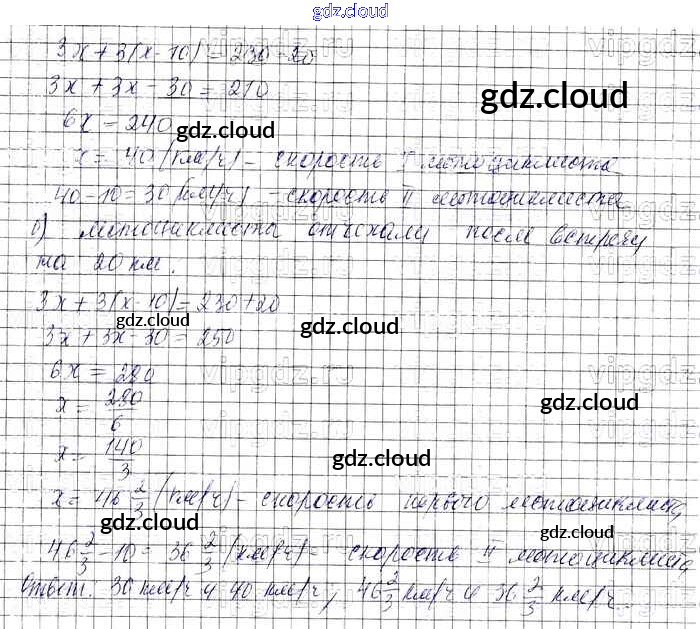 gdz.cloud
3x + 3(x - 10) = 230 - 20
3x + 3x - 30 = 210
gdz.cloud
6x = 240
gdz.cloud
x = 40 (км/ч) - скорость I мотоциклиста
40 - 10 = 30 (км/ч) - скорость II мотоциклиста
б) мотоциклисты отъехали после встречи
на 20 км.
3x + 3(x - 10) = 230 + 20
gdz.cloud
gdz.cloud
3x + 3x - 30 = 250
6x = 280
x = 280/6
gdz.cloud
x = 140/3
gdz.cloud
x = 46 2/3 (км/ч) - скорость первого мотоциклиста
gdz.cloud
gdz.cloud
46 2/3 - 10 = 36 2/3 (км/ч) - скорость II мотоциклиста
Ответ: 30 км/ч и 40 км/ч; 46 2/3 км/ч и 36 2/3 км/ч.